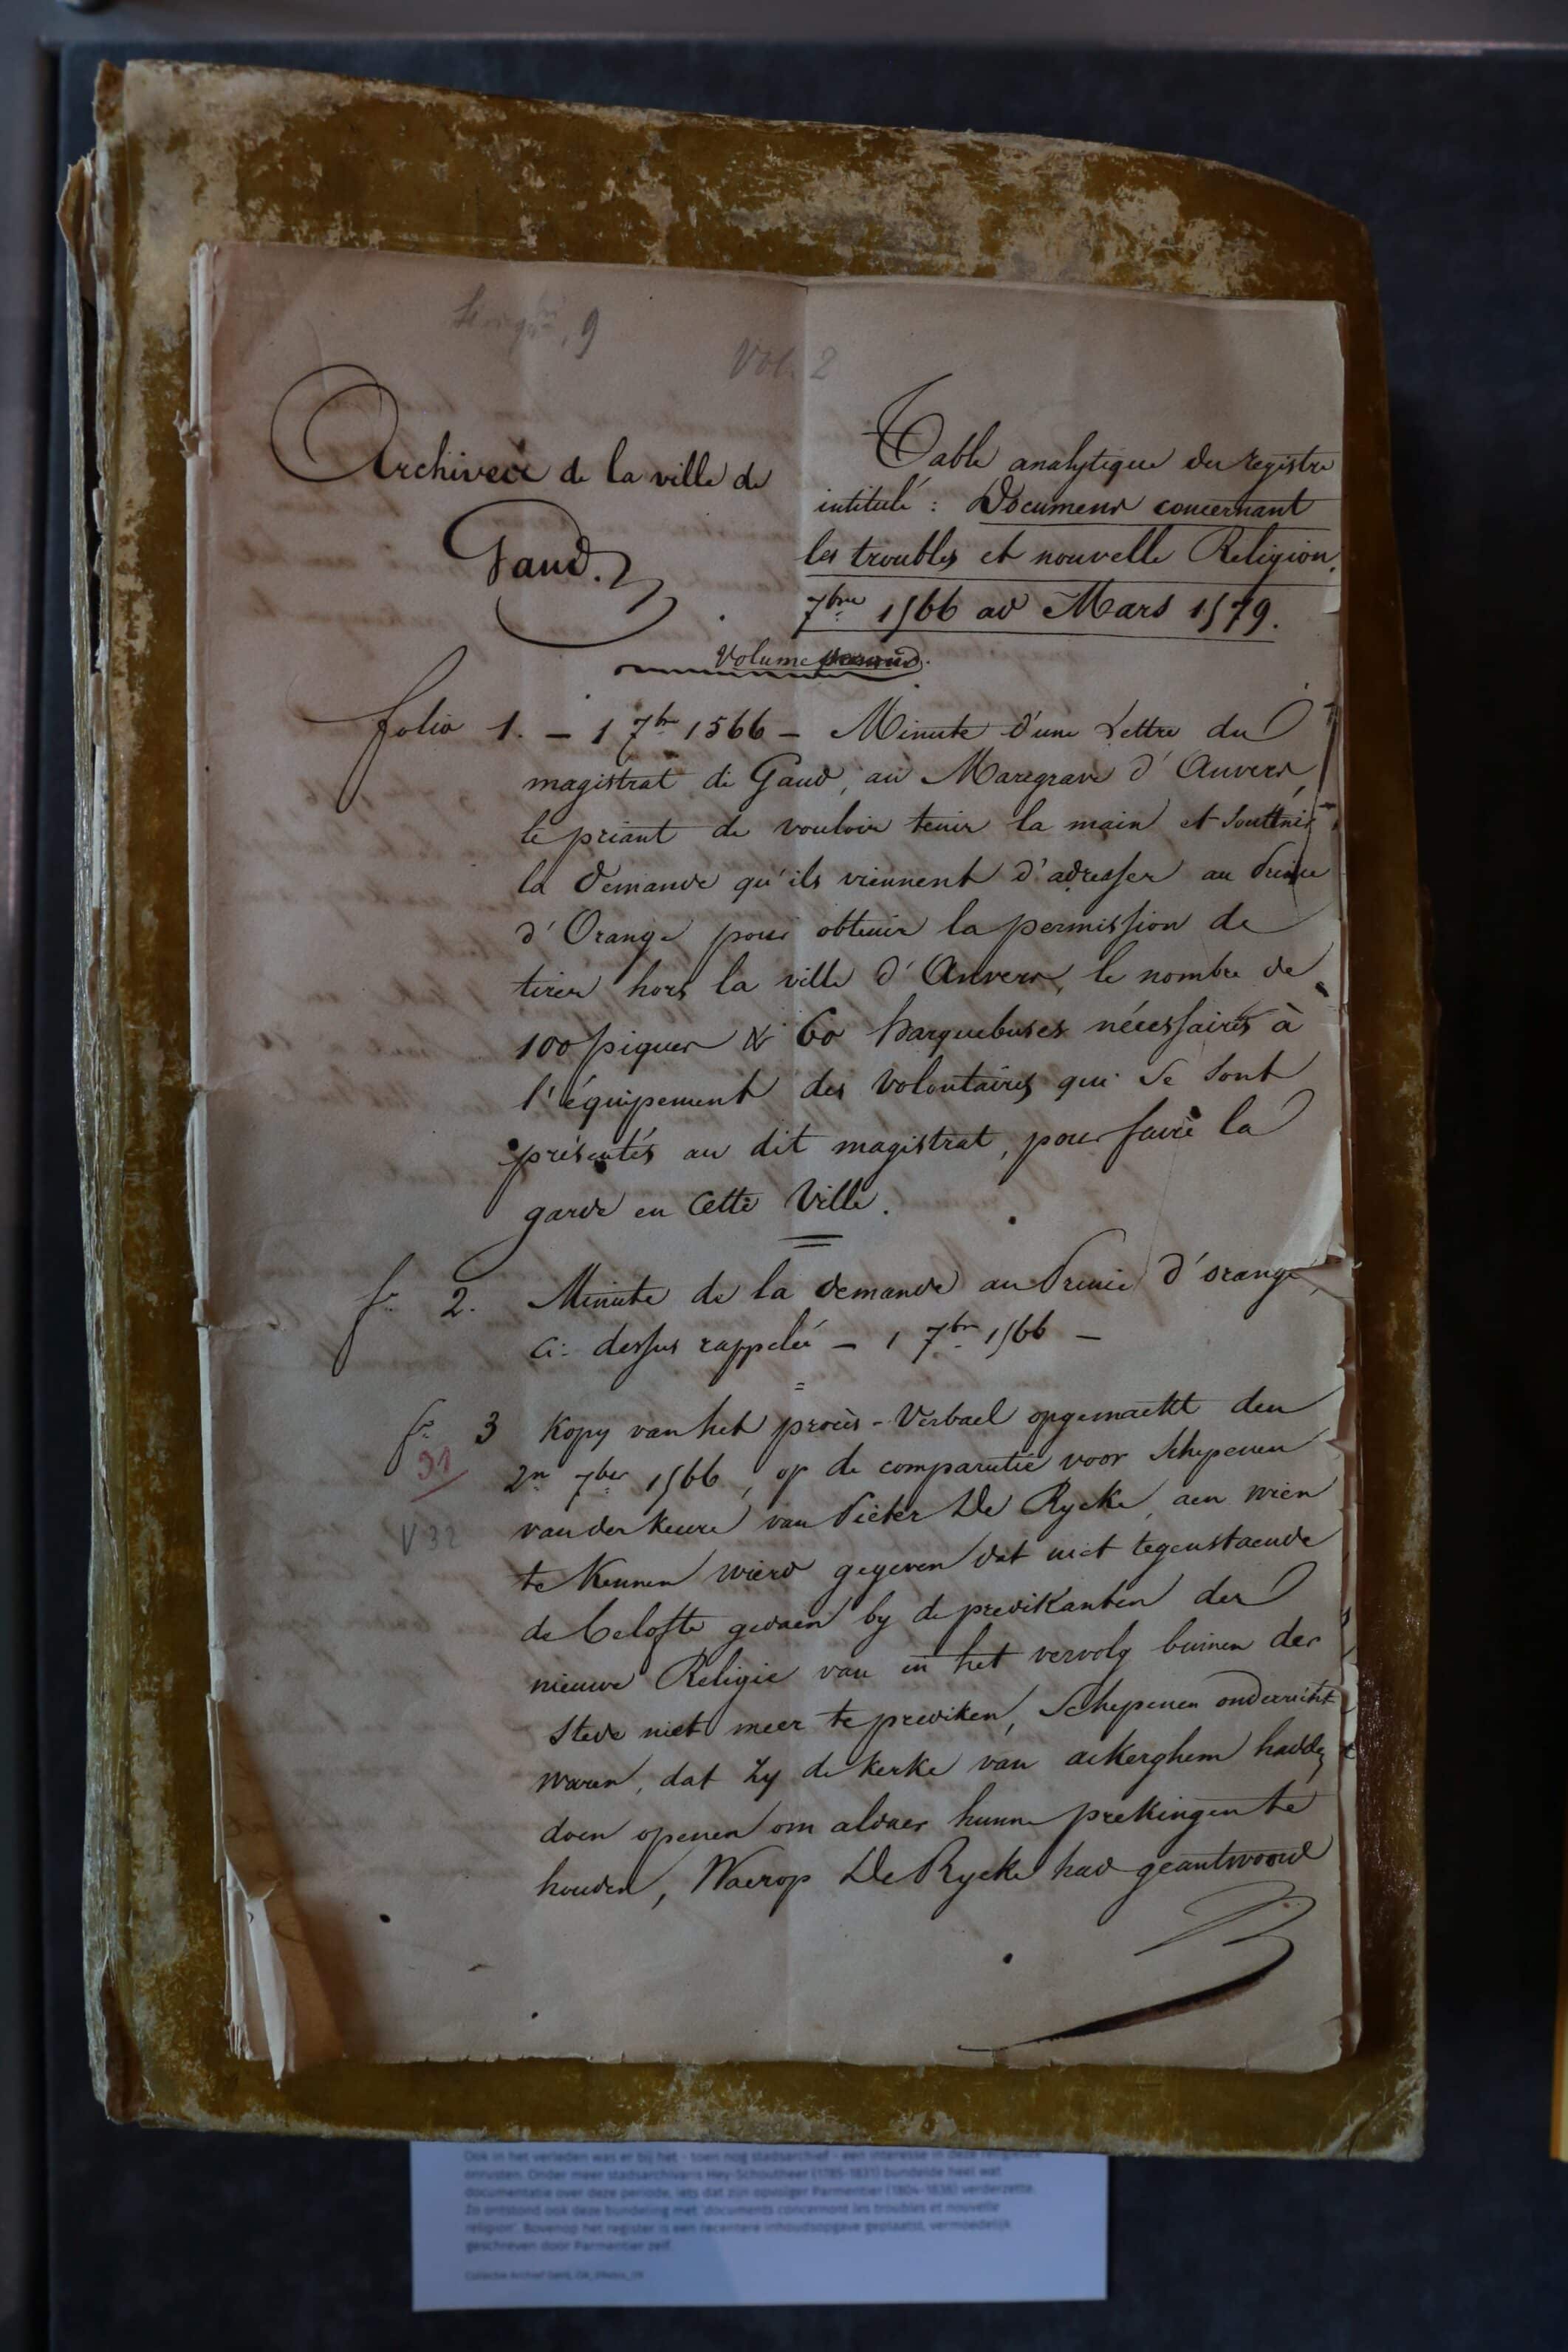 9
Vol. 2
Archives de la ville de
Gand.
Table analytique du registre
intitulé : Documens concernant
les troubles et nouvelle Religion.
7bre 1566 au Mars 1579.
Volume
folio 1. — 1 7br 1566 — Minute d'une Lettre du
magistrat de Gand, au Margrave d'Anvers,
le priant de vouloir tenir la main et soutenir
la demande qu'ils viennent d'adresser au Prince
d'Orange pour obtenir la permission de
tirer hors la ville d'Anvers, le nombre de
100 piques & 60 harquebuses nécessaires à
l'équipement des volontaires qui se sont
présentés au dit magistrat, pour faire la
garde en cette Ville.
fo 2. Minute de la demande au Prince d'orange,
ci-dessus rappelée — 1 7br 1566 —
fo 3 Kopy van het procès-Verbael opgemaekt den
31
2n 7ber 1566, op de comparutie voor Schepenen
V 32
van der keure van Pieter De Rycke, aen wien
te kennen wierd gegeven dat niet tegenstaende
de belofte gedaen by de predikanten der
nieuwe Religie van in het vervolg binnen der
Stede niet meer te prediken, Schepenen onderricht
waren, dat zy de kerke van akerghem hadden
doen openen om aldaer hunne prekingen te
houden, Waerop De Rycke had geantwoord
Ook in het verleden was er bij het - toen nog stadsarchief - een interesse in deze religieuze
onrusten. Onder meer stadsarchivaris Hey-Schoutheer (1785-1831) bundelde heel wat
documentatie over deze periode, iets dat zijn opvolger Parmentier (1804-1836) verderzette.
Zo ontstond ook deze bundeling met 'documents concernont les troubles et nouvelle
religion'. Bovenop het register is een recentere inhoudsopgave geplaatst, vermoedelijk
geschreven door Parmentier zelf.
Collectie Archief Gent,